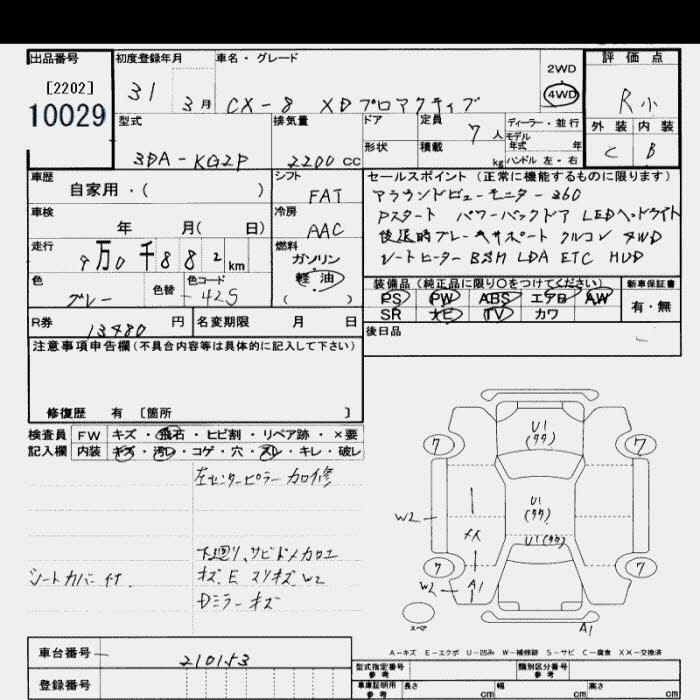 出品番号 初度登録年月 車名・グレード 評価点
[2202] 2WD
10029 31 3月 CX-8 XDプロアクティブ 4WD R小
型式 排気量 ドア 定員 7人 ディーラー・並行 外装 内装
モデル
形状 積載 kg 年式 年 C B
3DA-KG2P 2200cc ハンドル 左・右
車歴 シフト セールスポイント (正常に機能するものに限ります)
自家用・( ) FAT アラウンドビューモニター360
車検 冷房 Pスタート パワーバックドア LEDヘッドライト
年 月( 日) AAC 後退時ブレーキサポート クルコン 4WD
走行 燃料 シートヒーター BSM LDA ETC HUD
9万0千882km ガソリン
色 色替 色コード 軽・油 装備品(純正品に限り○をつけてください) 新車保証書
グレー -42S ( ) PS PW ABS エアB AW 有・無
SR 大E TV カワ
R券 13480円 名変期限 月 日 後日品
注意事項申告欄(不具合内容等は具体的に記入して下さい)
修復歴 有 [箇所 ]
検査員 FW キズ・飛石・ヒビ割・リペア跡・×要
記入欄 内装 キズ・汚レ・コゲ・穴・スレ・キレ・破レ
左センターピラー加修
下廻り、サビドメカロエ
シートカバー付. キズ.E スリキズ W2
Dミラーキズ
U1
(タタ)
7 7
U1
(タタ)
W2
U1(タタ)
7 7
W2 A1
スペア
A1
A-キズ E-エクボ U-凹み W-補修跡 S-サビ C-腐食 XX-交換済
車台番号 210153
型式指定番号 参考 類別区分番号 参考
登録番号
車庫証明用 参考 長さ cm 幅 cm 高さ cm